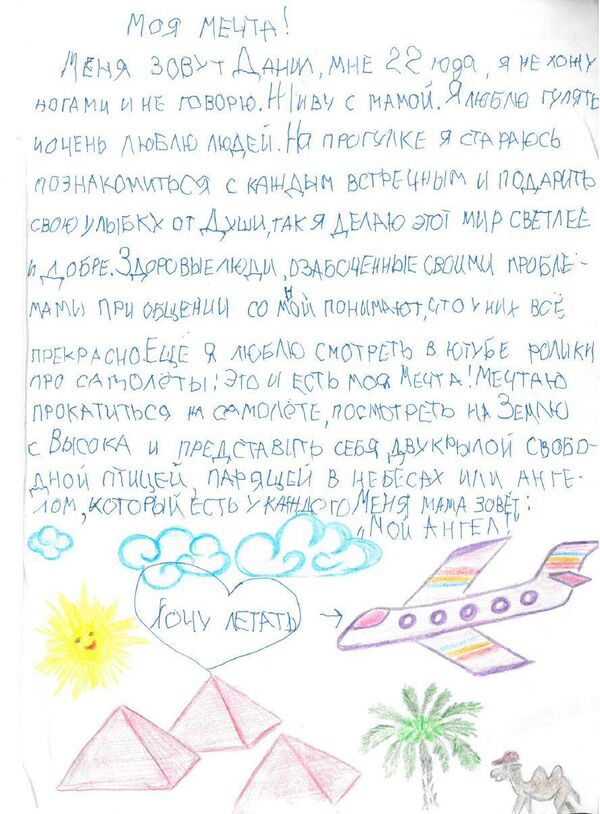 Моя мечта!
Меня зовут Данил, мне 22 года, я не хожу
ногами и не говорю. Живу с мамой. Я люблю гулять
и очень люблю людей. На прогулке я стараюсь
познакомиться с каждым встречным и подарить
свою улыбку от Души, так я делаю этот мир светлее
и добре. Здоровые люди, озабоченные своими пробле-
мами при общении со мной понимают, что у них всё
прекрасно. Ещё я люблю смотреть в ютубе ролики
про самолёты! Это и есть моя Мечта! Мечтаю
прокатиться на самолёте, посмотреть на Землю
с Высока и представить себя двукрылой свобо-
дной птицей, парящей в небесах или анге-
лом, который есть у каждого Меня мама зовёт:
"Мой Ангел!"
Хочу летать →